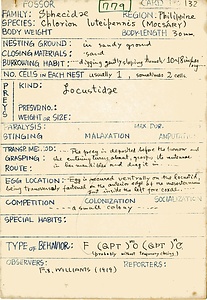 FOSSOR 779 CARD 1 132
FAMILY: Sphecidae REGION: Philippine
SPECIES: Chlorion luteipennis (Mocsáry)
BODY WEIGHT BODY LENGTH 30 mm
NESTING GROUND: in sandy ground
CLOSING MATERIALS: sand
BURROWING HABIT: digging gently sloping tunnel
NO. CELLS IN EACH NEST usually 1, sometimes 2 cells
PREYS
KIND:
Locustidae
PREYS NO.:
WEIGHT OR SIZE:
PARALYSIS:
STINGING MALAXATION
TRANSP. METHOD: The prey is deposited before the tunnel and
GRASPING: she entering turns about, grasps its antennae
ROUTE: in her mandibles and drags it in
EGG LOCATION: Egg is secured ventrally on the
being transversely fastened on the anterior edge of the mesosternum
just inside the left fore coxa.
COMPETITION COLONIZATION SOCIALIZATION
a small colony
SPECIAL HABITS:
TYPE OF BEHAVIOR: F
(probably without temporary closing)
OBSERVERS: REPORTERS:
F.X. WILLIAMS (1919)